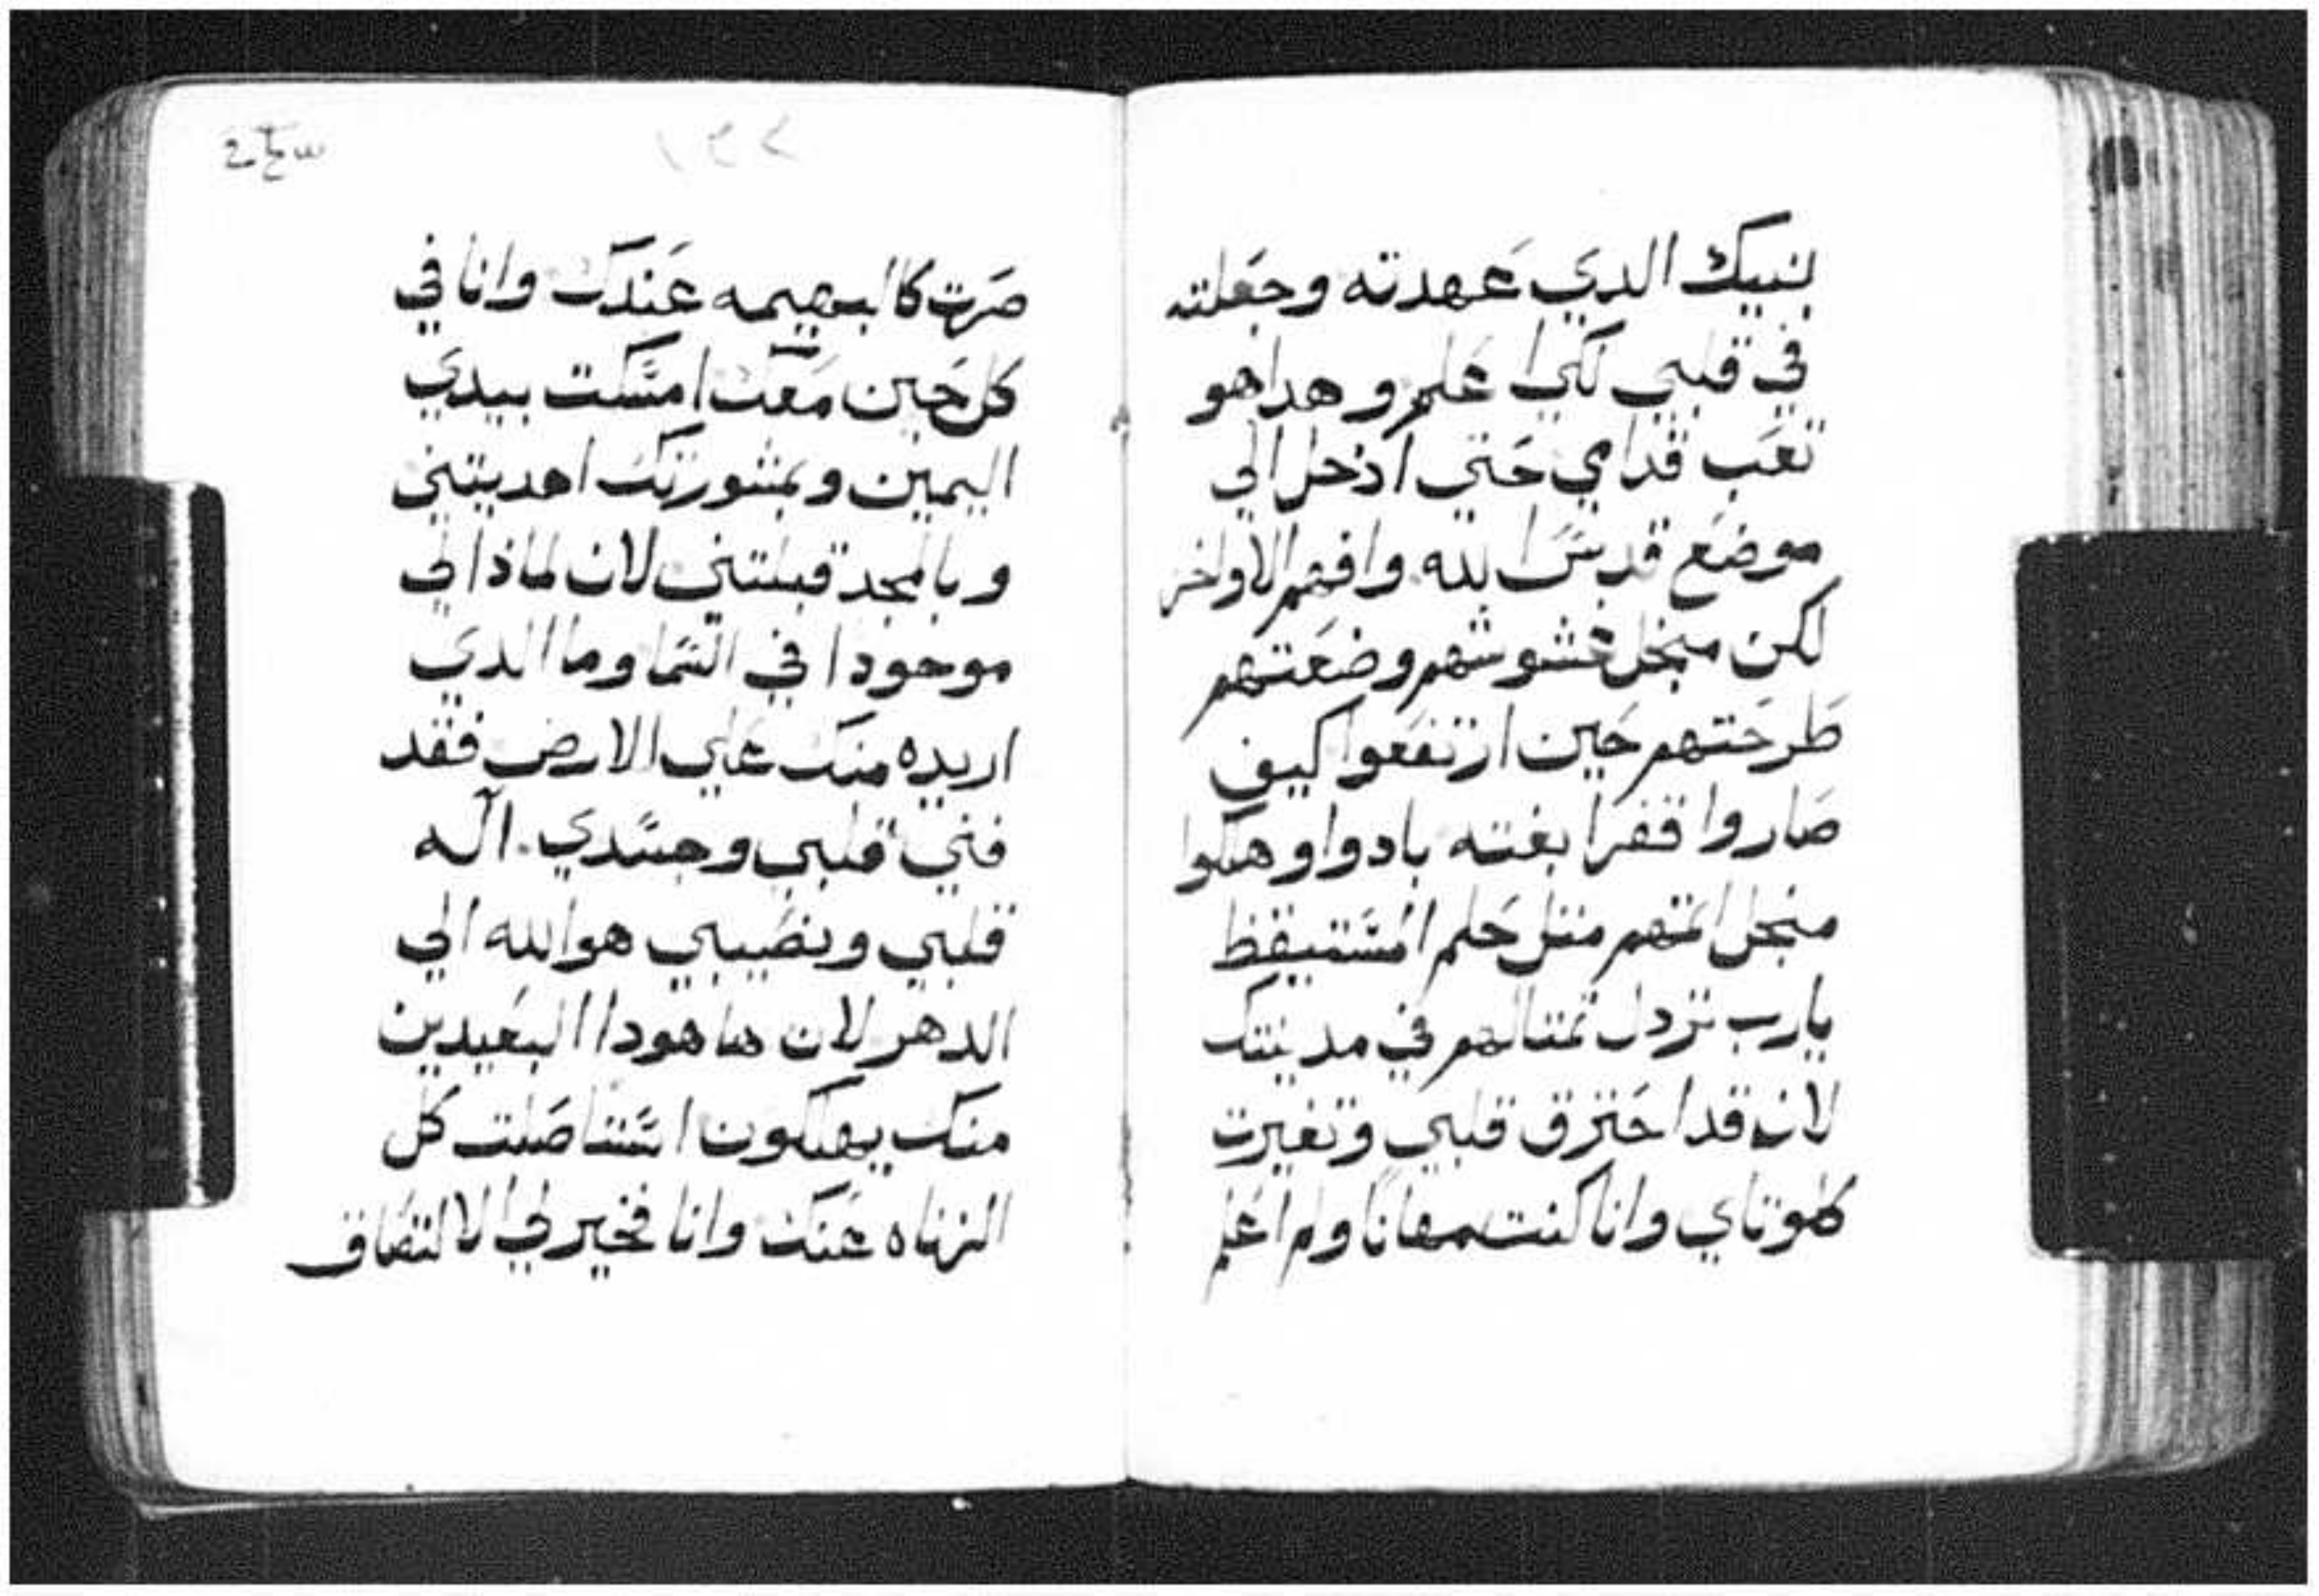 بنيك الدي عهدته وجعلته
في قلبي لكي اعلم وهدا هو
تعب قدامي حتي ادخل الي
موضع قدس الله وافهم الاواخر
لكن منجل غشوشهم وضعتهم
طرحتهم حين ارتفعوا كيف
صاروا قفرا بغته بادوا وهلكوا
منجل اتمهم متل حلم المستيقظ
يارب تزدل تمتالهم في مدينتك
لان قد احترق قلبي وتغيرت
كلوتاي وانا كنت مهانا ولم اعلم
١٢٧
صرت كالبهيمه عندك وانا في
كل حين معك امسكت بيدي
اليمين وبمشورتك اهديتني
وبالمجد قبلتني لان لماذا لي
موجودا في السما وما الدي
اريده منك علي الارض فقد
فني قلبي وجسدي. اله
قلبي ونصيبي هو الله الي
الدهر لان ها هودا البعيدين
منك يهلكون استاصلت كل
الزناه عنك وانا فخير لي الالتصاق